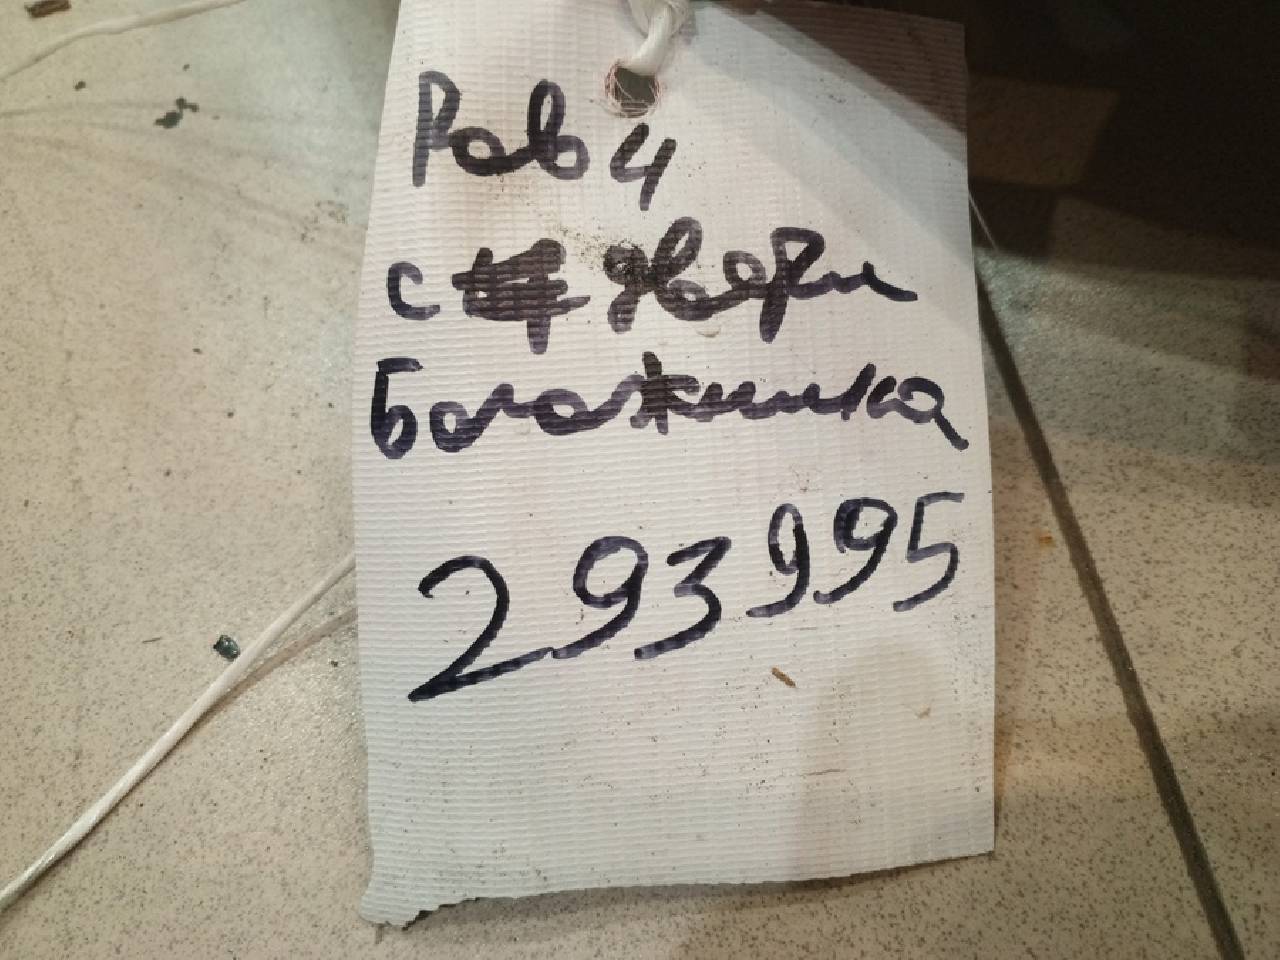 Рав 4
с двери
Богажника
293995